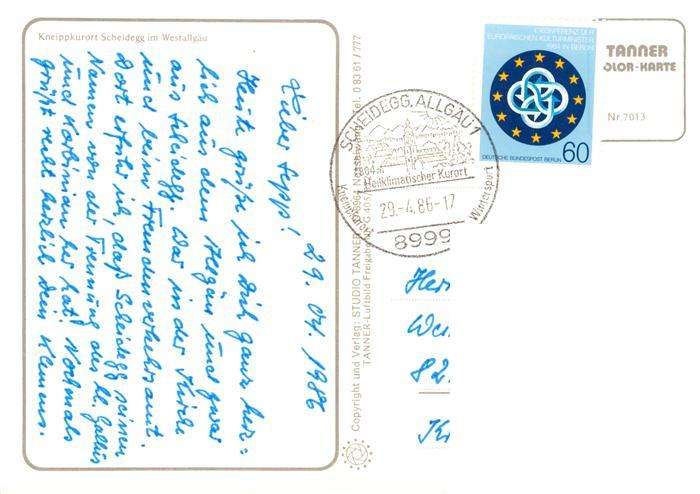 Kneippkurort Scheidegg im Westallgäu
29.04.1986
Lieber Sepp!
Heute grüße ich Dich ganz herz=
lich aus dem Allgäu und zwar
aus Scheidegg. War in der Kirche
und beim Fremdenverkehrsamt.
Dort erfuhr ich, daß Scheidegg seinen
Namen von der Trennung des hl. Gallus
und Korbinian her hat! Nochmals
grüßt recht herzlich Dein
Klemens.
Copyright und Verlag: STUDIO TANNER
Tel. 0 83 61 / 777
TANNER-Luftbild Freigabe
SCHEIDEGG, ALLGÄU 1
804 m
Heilklimatischer Kurort
Kneippkurort
Wintersport
29.-4.86-17
8999
KONFERENZ DER
EUROPÄISCHEN KULTURMINISTER
1984 IN BERLIN
DEUTSCHE BUNDESPOST BERLIN
60
TANNER
OLOR-KARTE
Nr. 7013
Her
82